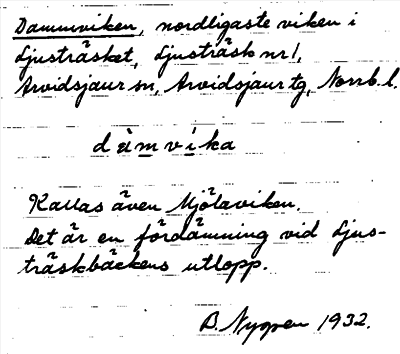 Dammviken, nordligaste viken i
Ljusträsket, Ljusträsk nr 1,
Arvidsjaur sn, Arvidsjaur tg, Norrb. l.
dàmvika
Kallas även Mjölaviken.
Det är en fördämning vid Ljus-
träskbäckens utlopp.
B. Nygren 1932.